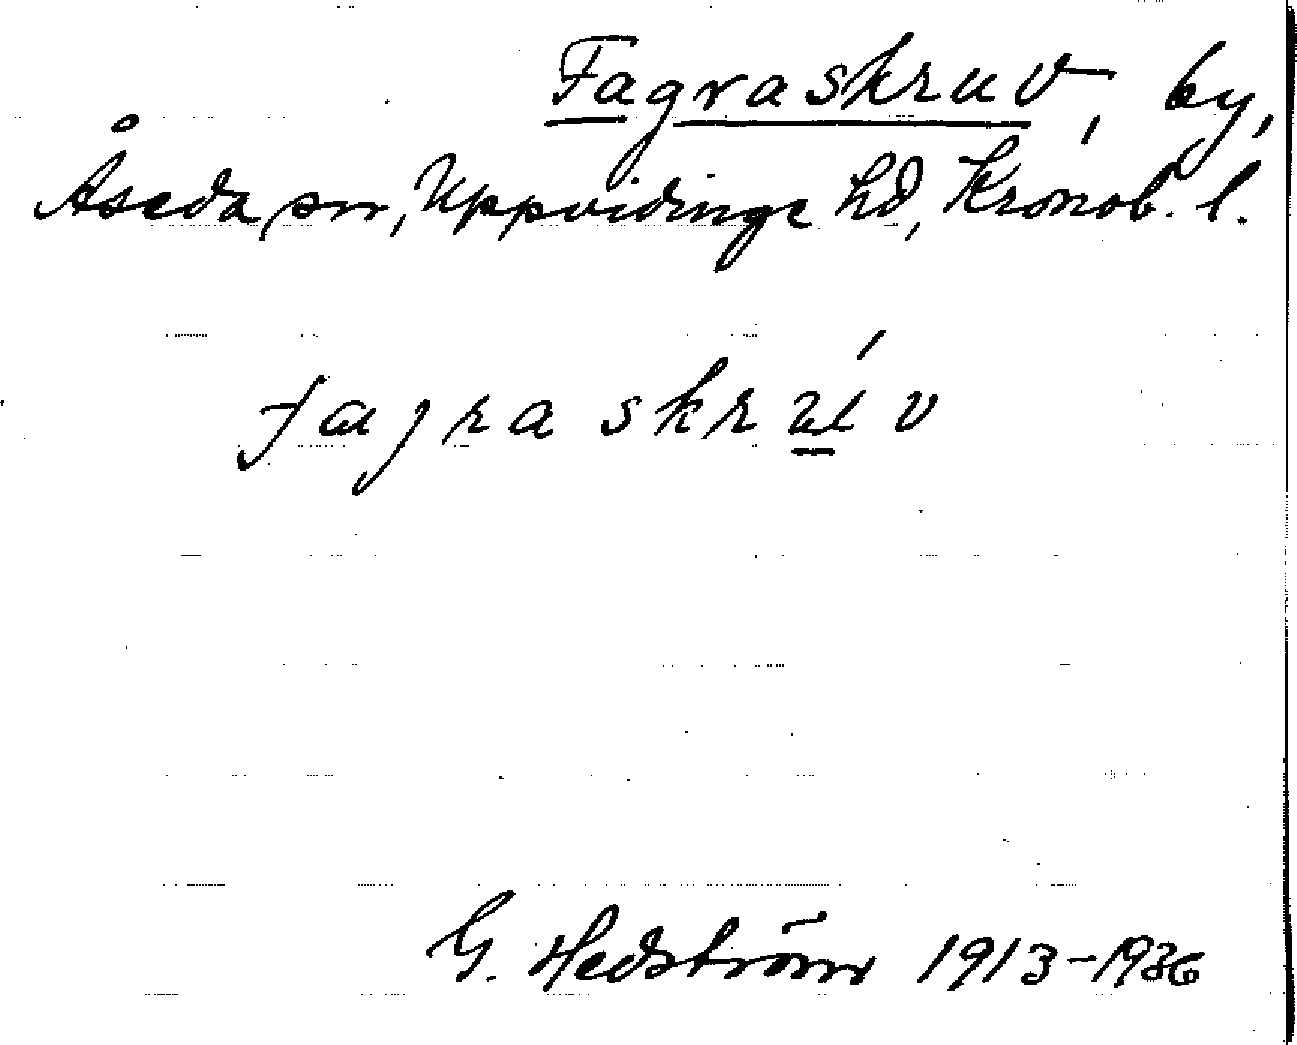 Fagraskruv, by,
Åseda sn, Uppvidinge hd, Kronob. l.
fagraskrúv
G. Hedström 1913-1936